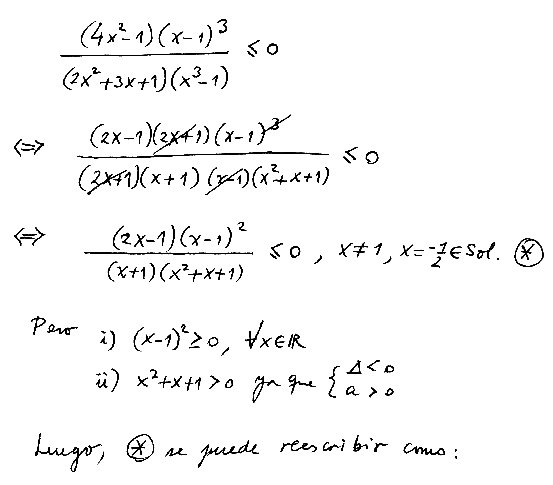 (4x²-1)(x-1)³
───────────── ≤ 0
(2x²+3x+1)(x³-1)
⇔ (2x-1)(2x+1)(x-1)³
───────────── ≤ 0
(2x+1)(x+1)(x-1)(x²+x+1)
⇔ (2x-1)(x-1)²
───────────── ≤ 0 , x≠1, x=-1/2 ∈ Sol. ⊛
(x+1)(x²+x+1)
Pero i) (x-1)² ≥ 0, ∀x∈ℝ
ii) x²+x+1 > 0 ya que { Δ<0
a > 0
Luego, ⊛ se puede reescribir como: